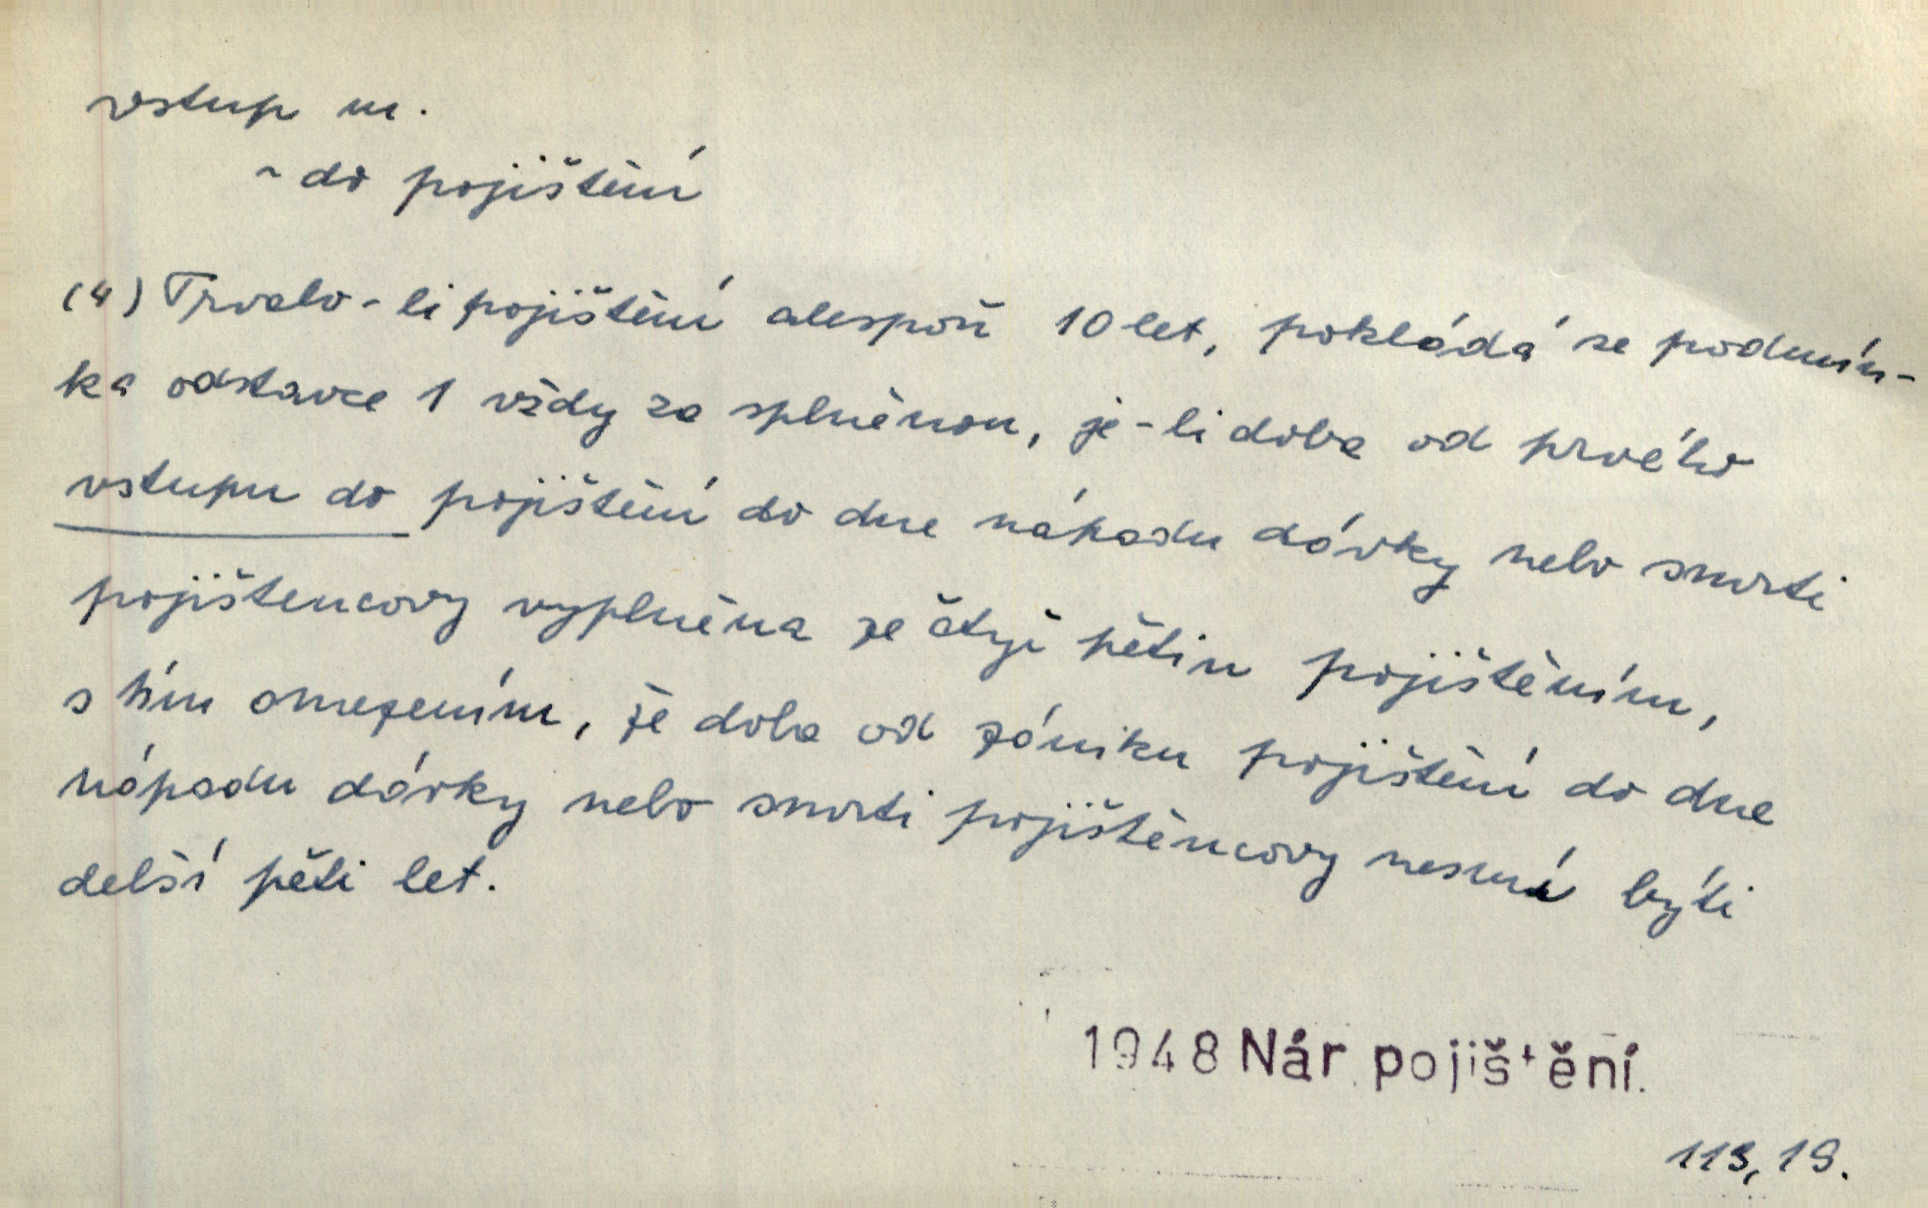 vstup m.
~ do pojištění
(4) Trvalo-li pojištění alespoň 10 let, pokládá se podmín-
ka odstavce 1 vždy za splněnou, je-li doba od prvého
vstupu do pojištění do dne nápadu dávky nebo smrti
pojištencovy vyplněna ze čtyř pětin pojištěním,
s tím omezením, že doba od zániku pojištění do dne
nápadu dávky nebo smrti pojištěncovy nesmí býti
delší pěti let.
1948 Nár. pojištění.
113, 19.